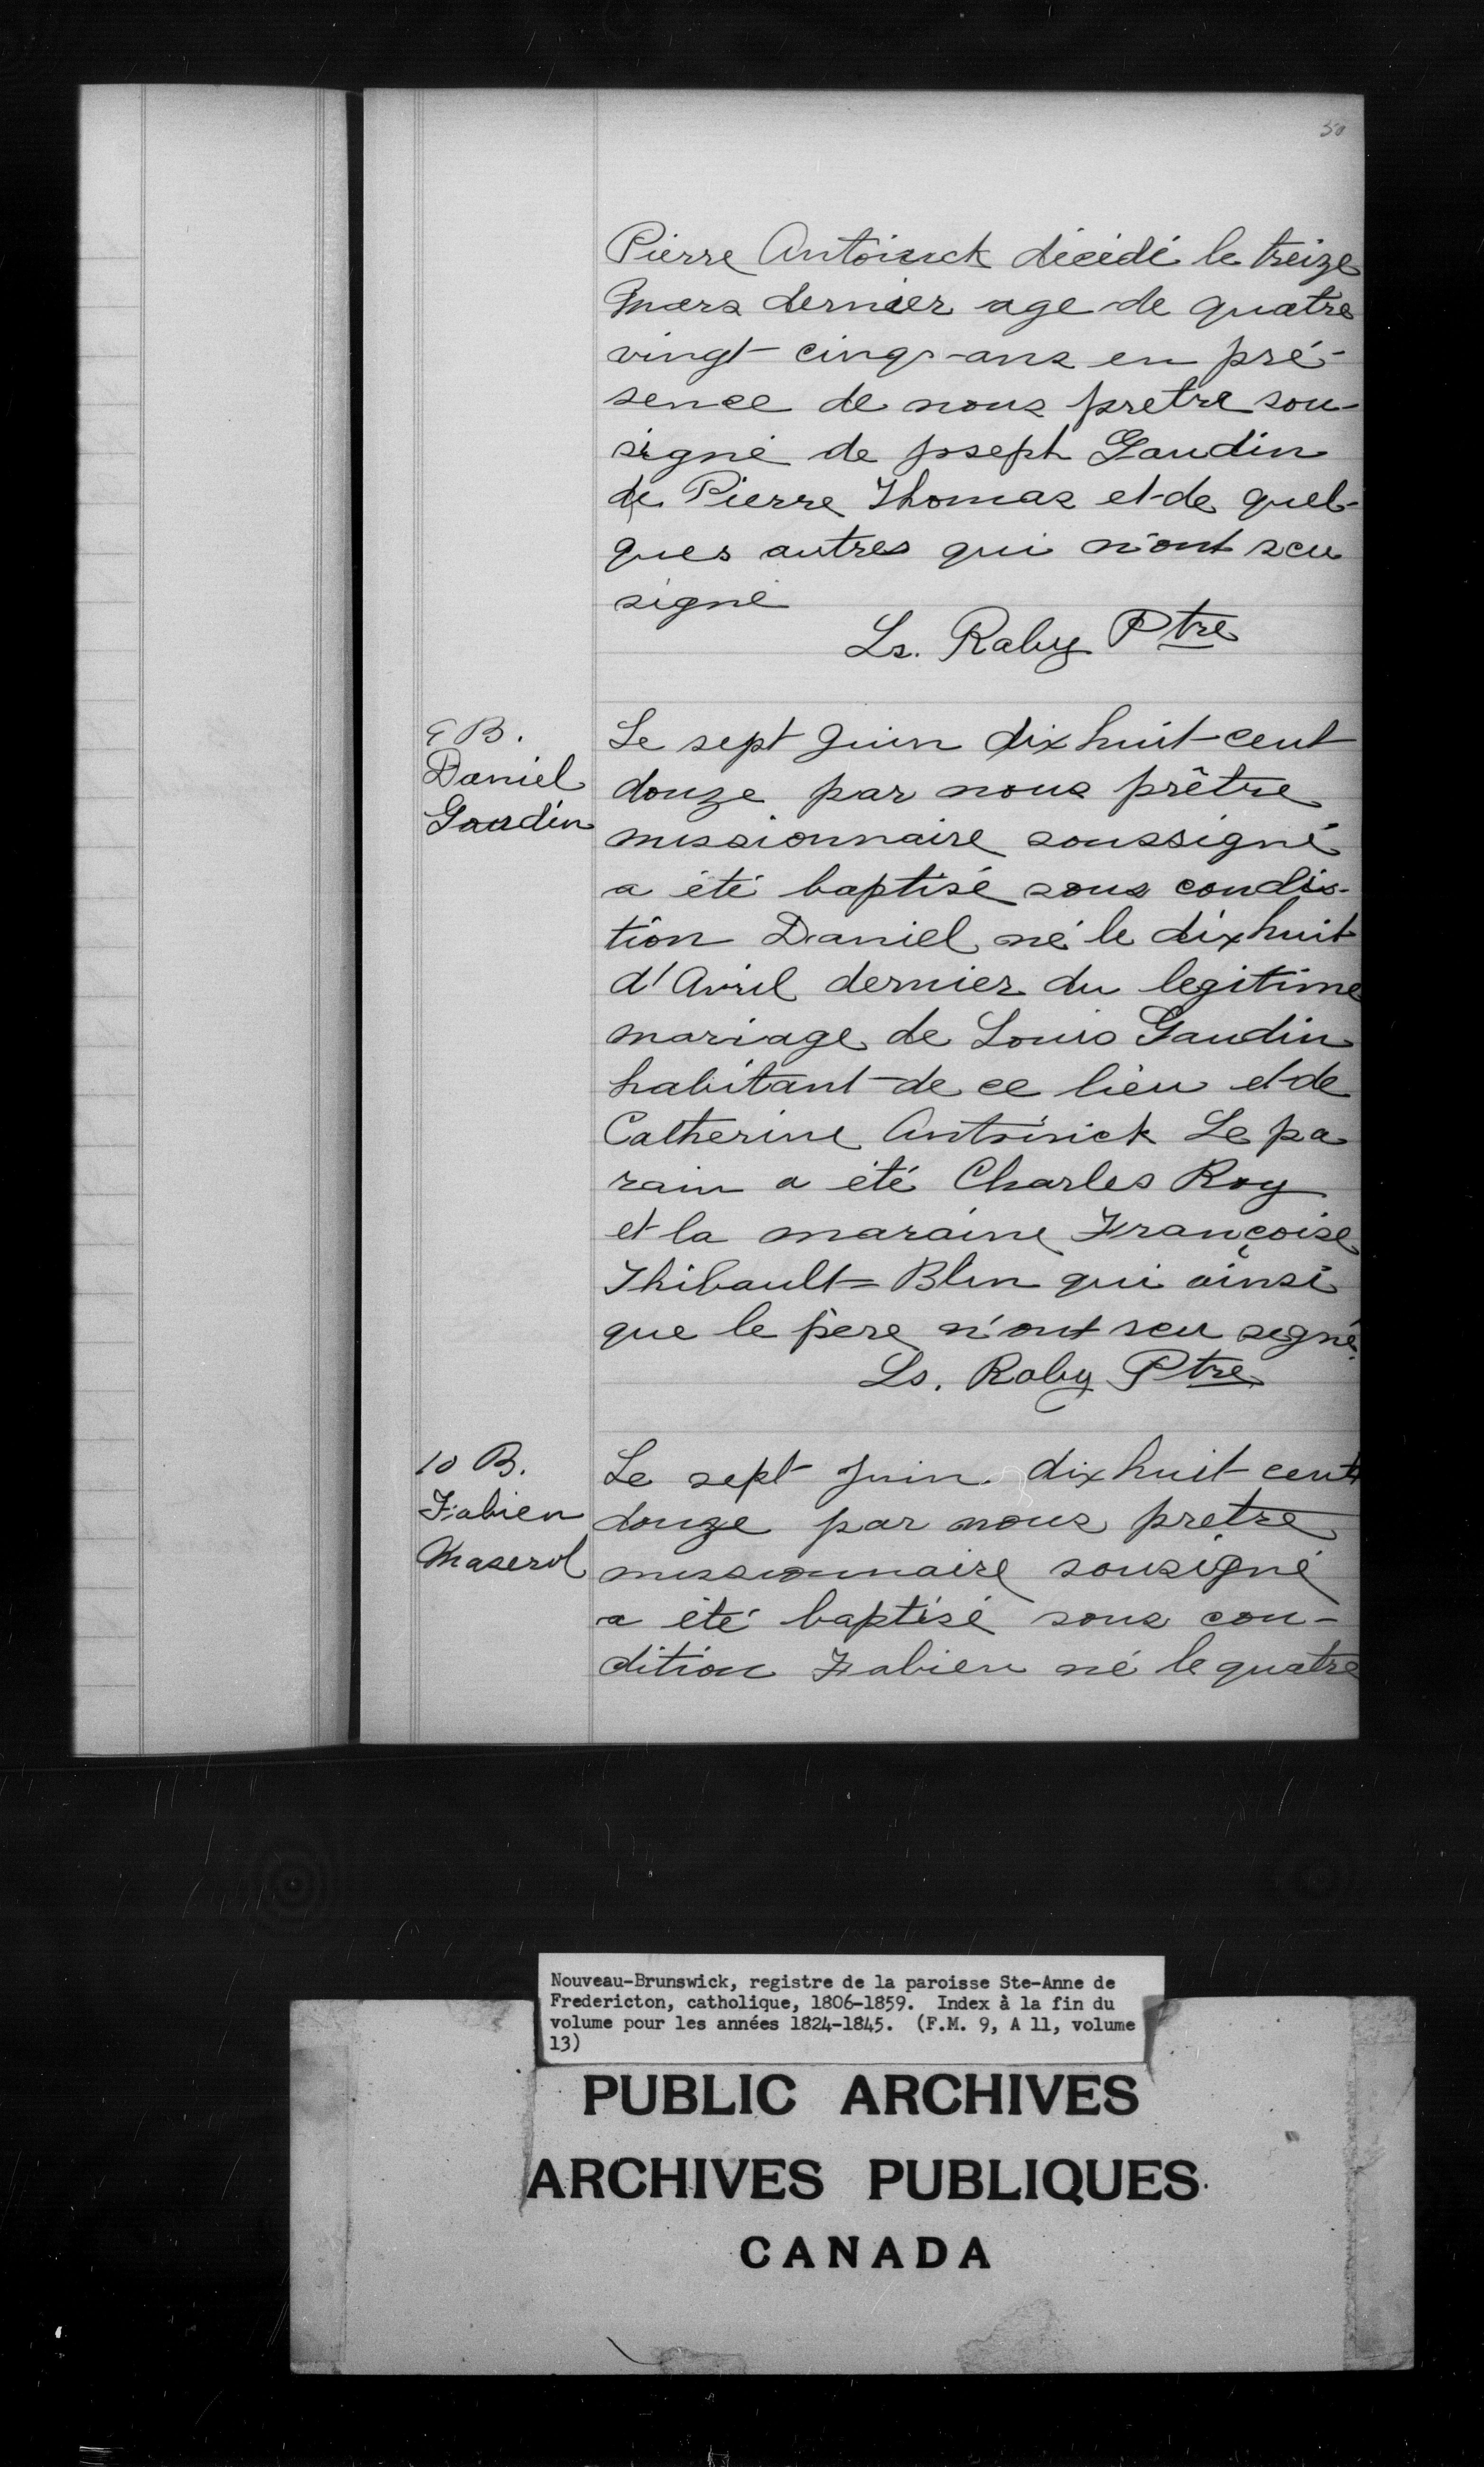 50
Pierre Antoinick décédé le treize
Mars dernier age de quatre
vingt cinq ans en pré-
sence de nous pretre sou-
signé de Joseph Gaudin
de Pierre Thomas et de quel-
ques autres qui n'ont seu
signé
Ls. Raby Ptre
9 B.
Daniel
Gaudin
Le sept Juin dix huit cent
douze par nous prêtre
missionnaire soussigné
a été baptisé sous condi-
tion Daniel né le dix huit
d'Avril dernier du legitime
mariage de Louis Gaudin
habitant de ce lieu et de
Catherine Antoinick Le pa
rain a été Charles Roy
et la maraine Françoise
Thibault = Blin qui ainsi
que le père n'ont seu signé.
Ls. Raby Ptre
10 B.
Fabien
Maserol
Le sept Juin dix huit cent
douze par nous pretre
missionnaire sousigné
a été baptisé sous con-
dition Fabien né le quatre
Nouveau-Brunswick, registre de la paroisse Ste-Anne de
Fredericton, catholique, 1806-1859. Index à la fin du
volume pour les années 1824-1845. (F.M. 9, A 11, volume
13)
PUBLIC ARCHIVES
ARCHIVES PUBLIQUES
CANADA